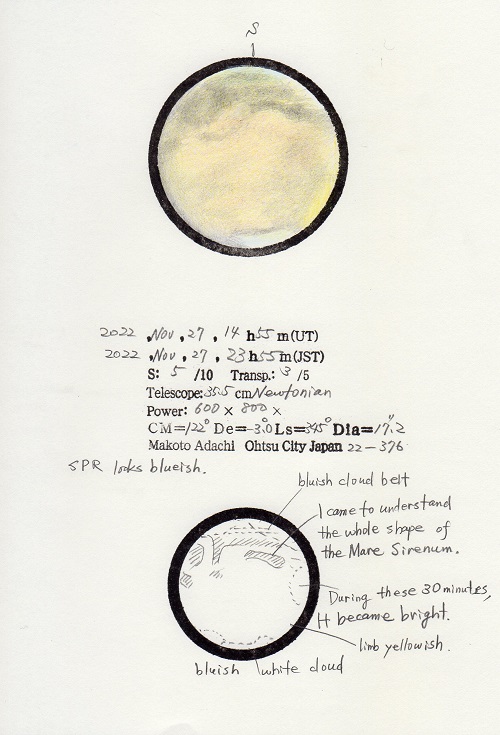 S
2022 ,Nov , 27 , 14 h 55 m(UT)
2022 ,Nov , 27 , 23 h 55 m(JST)
S: 5 /10 Transp.: 3 /5
Telescope: 35.5 cm Newtonian
Power: 600 × 800 ×
CM=122° De=-3.0° Ls=345° Dia=17.2"
Makoto Adachi Ohtsu City Japan 22-376
SPR looks blueish.
bluish cloud belt
I came to understand
the whole shape of
the Mare Sirenum.
During these 30 minutes,
It became bright.
limb yellowish.
bluish white cloud